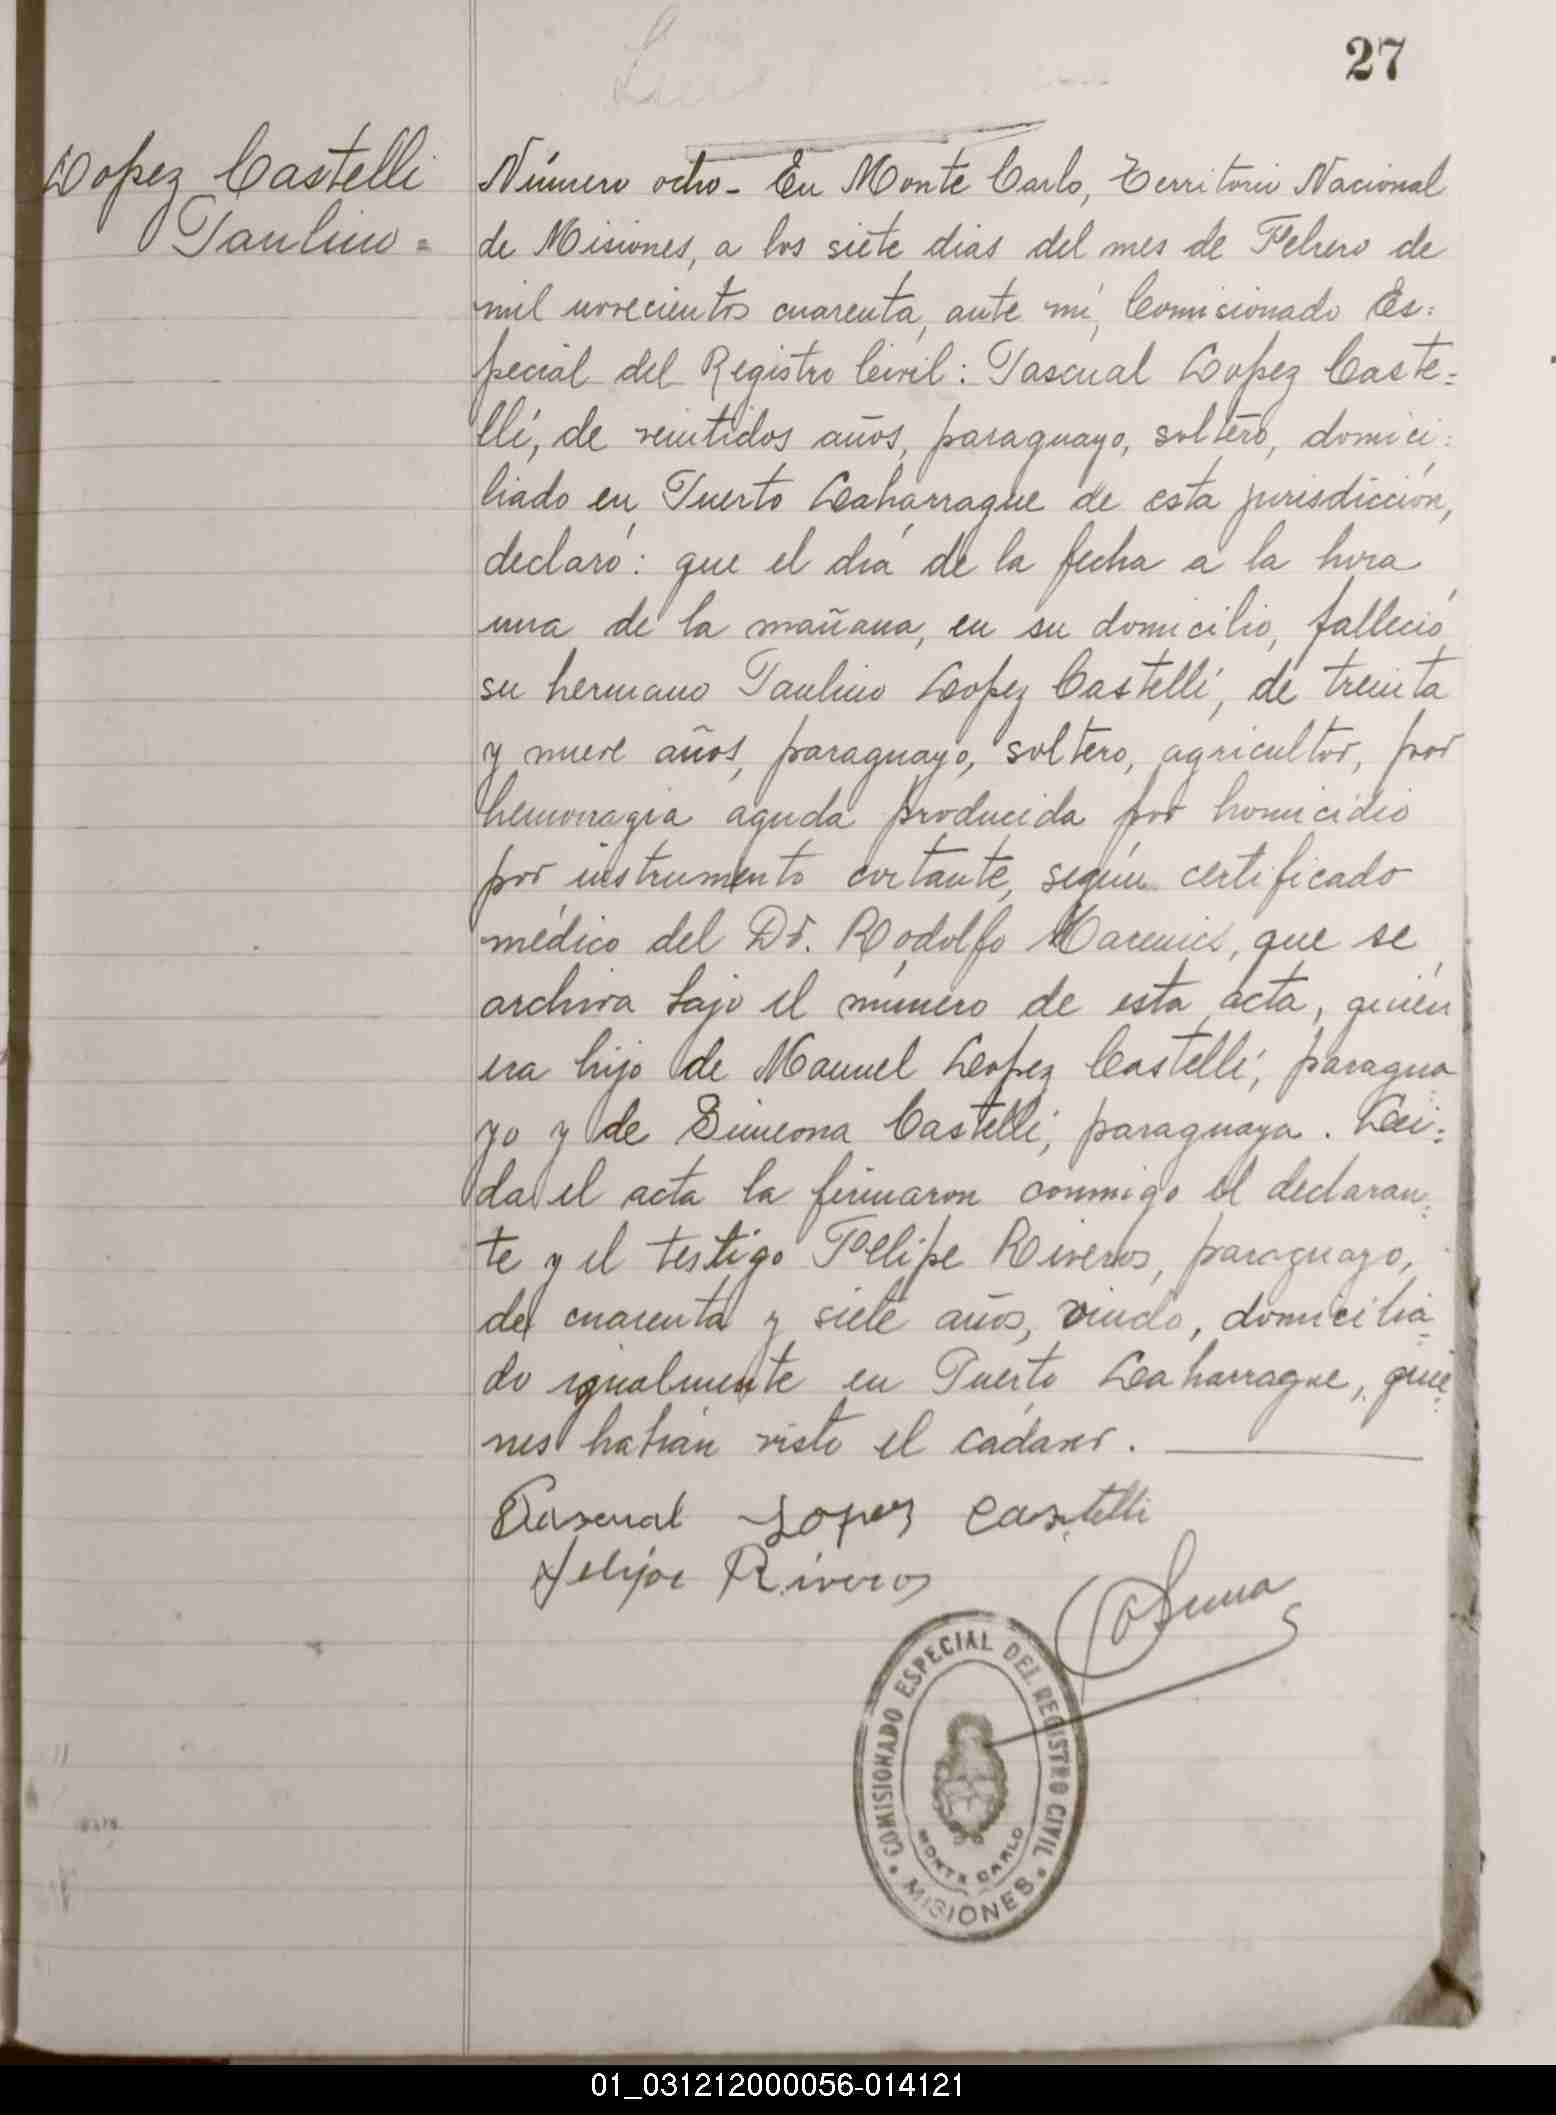 27
Lopez Castelli
Paulino =
Número ocho - En Monte Carlo, Territorio Nacional
de Misiones, a los siete dias del mes de Febrero de
mil novecientos cuarenta, ante mí, Comisionado Es=
pecial del Registro Civil: Pascual Lopez Caste=
lli, de veintidos años, paraguayo, soltero, domici=
liado en Puerto Laharrague de esta jurisdicción,
declaró: que el día de la fecha a la hora
una de la mañana, en su domicilio, falleció
su hermano Paulino Lopez Castelli, de treinta
y nueve años, paraguayo, soltero, agricultor, por
hemorragia aguda producida por homicidio
por instrumento cortante, según certificado
médico del Dr. Rodolfo que se
archiva bajo el número de esta acta, quién
era hijo de Manuel Lopez Castelli, paragua
yo y de Simeona Castelli, paraguaya. Lei=
da el acta la firmaron conmigo el declaran=
te y el testigo Felipe Riveros, paraguayo,
de cuarenta y siete años, viudo, domicilia=
do igualmente en Puerto Laharrague, quie=
nes habían visto el cadaver.
Pascual Lopez Castelli
Felipe Riveros
COMISIONADO ESPECIAL DEL REGISTRO CIVIL
MONTE CARLO
MISIONES
01_031212000056-014121